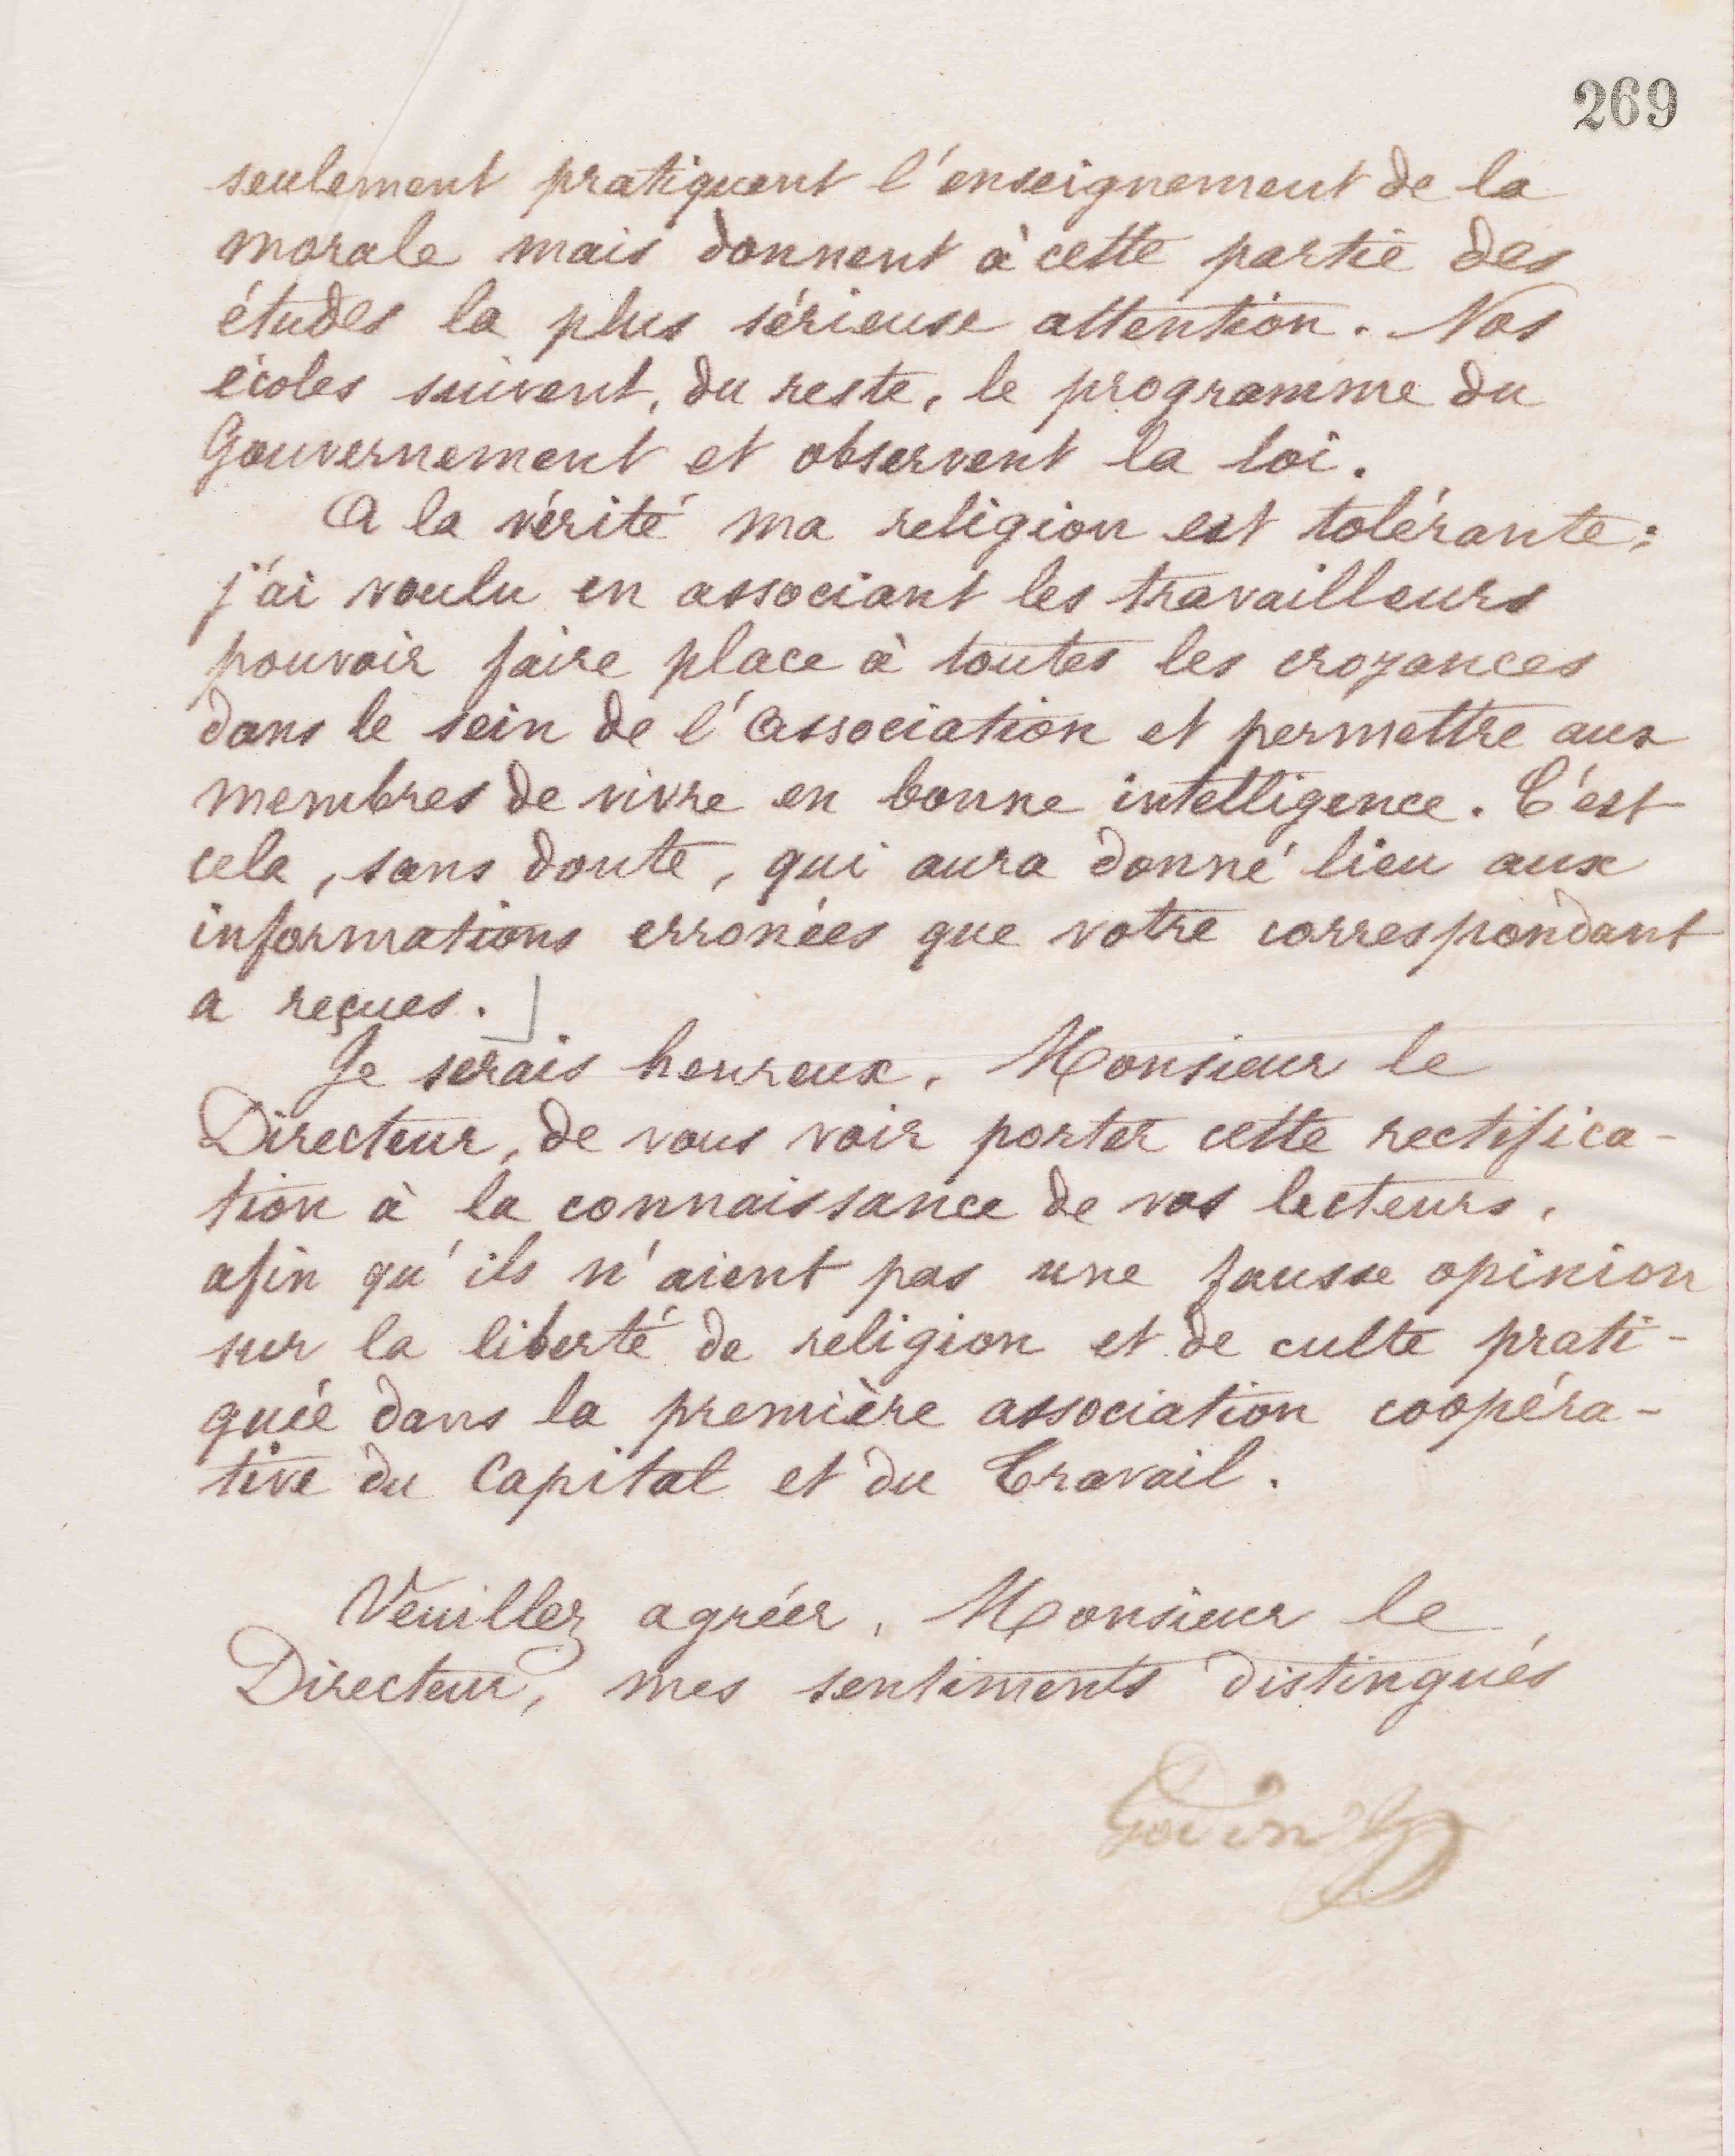 269
seulement pratiquent l'enseignement de la
morale mais donnent à cette partie des
études la plus sérieuse attention. Nos
écoles suivent, du reste, le programme du
Gouvernement et observent la loi.
A la vérité ma religion est tolérante;
j'ai voulu en associant les travailleurs
pouvoir faire place à toutes les croyances
dans le sein de l'Association et permettre aux
membres de vivre en bonne intelligence. C'est
cela, sans doute, qui aura donné lieu aux
informations erronées que votre correspondant
a reçues.
Je serais heureux, Monsieur le
Directeur, de vous voir porter cette rectifica-
tion à la connaissance de vos lecteurs,
afin qu'ils n'aient pas une fausse opinion
sur la liberté de religion et de culte prati-
quée dans la première association coopéra-
tive du Capital et du Travail.
Veuillez agréer, Monsieur le
Directeur, mes sentiments distingués
Godin